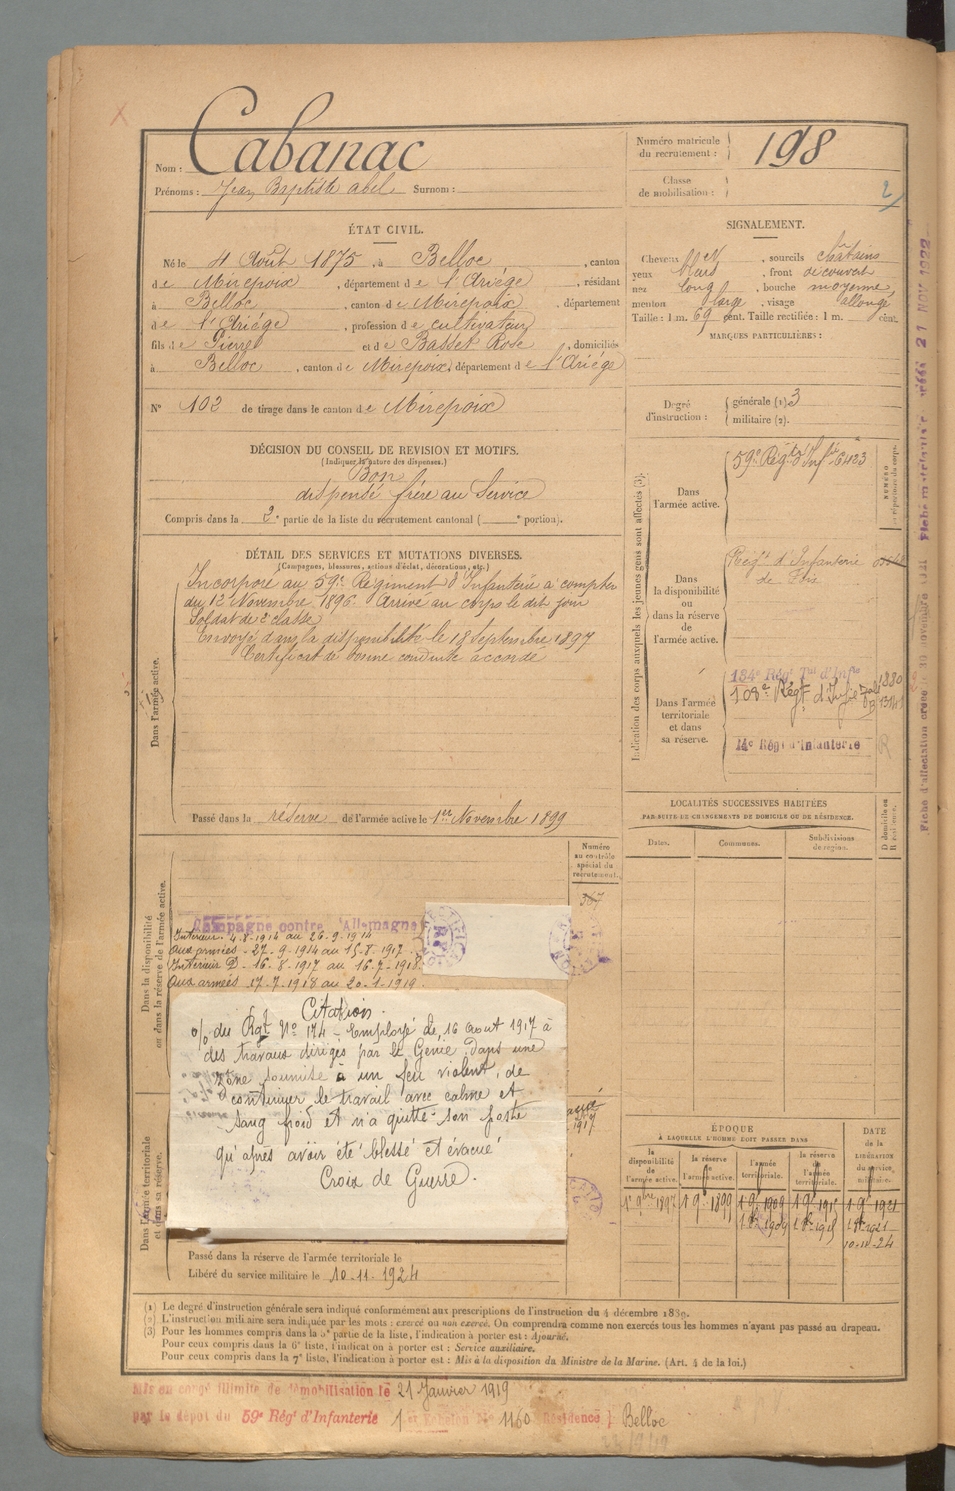 Nom : Cabanac
Prénoms : Jean Baptiste Abel Surnom :
Numéro matricule
du recrutement :
198
Classe
de mobilisation :
2
ÉTAT CIVIL.
Né le 4 Août 1875, à Belloc, canton
de Mirepoix, département de l'Ariège, résidant
à Belloc, canton de Mirepoix, département
de l'Ariège, profession de cultivateur
fils de Pierre et de Basset Rose, domiciliés
à Belloc, canton de Mirepoix, département de l'Ariège
N° 102 de tirage dans le canton de Mirepoix
SIGNALEMENT.
Cheveux, sourcils châtains
yeux bleus, front découvert
nez long, bouche moyenne
menton large, visage allongé
Taille : 1 m. 69 cent. Taille rectifiée : 1 m. cent.
MARQUES PARTICULIÈRES :
Degré
d'instruction :
générale (1) 3
militaire (2).
DÉCISION DU CONSEIL DE REVISION ET MOTIFS.
(Indiquer la nature des dispenses.)
Bon
dispensé frère au Service
Compris dans la 2e partie de la liste du recrutement cantonal ( e portion).
DÉTAIL DES SERVICES ET MUTATIONS DIVERSES.
(Campagnes, blessures, actions d'éclat, décorations, etc.)
Dans l'armée active.
Incorporé au 59e Régiment d'Infanterie à compter
du 12 Novembre 1896. Arrivé au corps le dit jour
Soldat de 2e classe
Envoyé dans la disponibilité le 18 Septembre 1897
Certificat de bonne conduite accordé
Passé dans la réserve de l'armée active le 1er Novembre 1899
Indication des corps auxquels les jeunes gens sont affectés (3).
NUMÉRO
Dans
l'armée active.
59e Régt d'Infie 6423
Dans
la disponibilité
ou
dans la réserve
de
l'armée active.
Régt d'Infanterie
de Foix
Dans l'armée
territoriale
et dans
sa réserve.
134e Régt Tal d'Infie
14e Régt d'Infanterie
R
LOCALITÉS SUCCESSIVES HABITÉES
PAR SUITE DE CHANGEMENTS DE DOMICILE OU DE RÉSIDENCE.
D domicile ou
R résidence.
Dates.
Communes.
Subdivisions
de région.
Numéro
au contrôle
spécial du
recrutement.
Dans la disponibilité
ou dans la réserve de l'armée active.
Campagne contre l'Allemagne
Intérieur 4-8-1914 au 26-9-1914
aux armées - 27-9-1914 au 15-8-1917
Intérieur D - 16-8-1917 au 16-7-1918
aux armées 17-7-1918 au 20-1-1919.
Citation.
O/ du Rgt N° 174 - Employé le 16 août 1917 à
des travaux dirigés par le Génie dans une
zone soumise à un feu violent, de
continuer le travail avec calme et
sang froid et n'a quitté son poste
qu'après avoir été blessé et évacué
Croix de Guerre.
1917
Dans l'armée territoriale
et dans sa réserve.
Passé dans la réserve de l'armée territoriale le
Libéré du service militaire le 10-11-1924
ÉPOQUE
À LAQUELLE L'HOMME DOIT PASSER DANS
DATE
de la
LIBÉRATION
du service
militaire.
la
disponibilité
de l'armée active.
la réserve
de
l'armée active.
l'armée
territoriale.
la réserve
de
l'armée
territoriale.
1er 9bre 1897
1 9e 1899
1 9e 1909
1 9e 1915
1 9e 1921
10-11-24
(1) Le degré d'instruction générale sera indiqué conformément aux prescriptions de l'instruction du 4 décembre 1889.
(2) L'instruction militaire sera indiquée par les mots : exercé ou non exercé. On comprendra comme non exercés tous les hommes n'ayant pas passé au drapeau.
(3) Pour les hommes compris dans la 5e partie de la liste, l'indication à porter est : Ajourné.
Pour ceux compris dans la 6e liste, l'indication à porter est : Service auxiliaire.
Pour ceux compris dans la 7e liste, l'indication à porter est : Mis à la disposition du Ministre de la Marine. (Art. 4 de la loi.)
Mis en congé illimité de démobilisation le 21 Janvier 1919
par le dépôt du 59e Régt d'Infanterie 1er Echelon N° 1160 Résidence : Belloc
21 NOV 1922